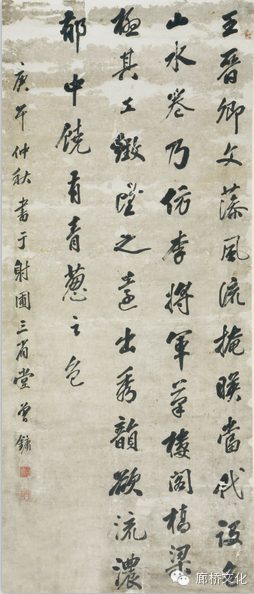 王晋卿文藻風流掩映當代設色
山水卷乃仿李將軍筆樓閣橋梁
極其工緻望之遠出秀韻欲流濃
郁中饒有青蔥之色
庚午仲秋書于射圃三省堂 曾鏞
廊桥文化